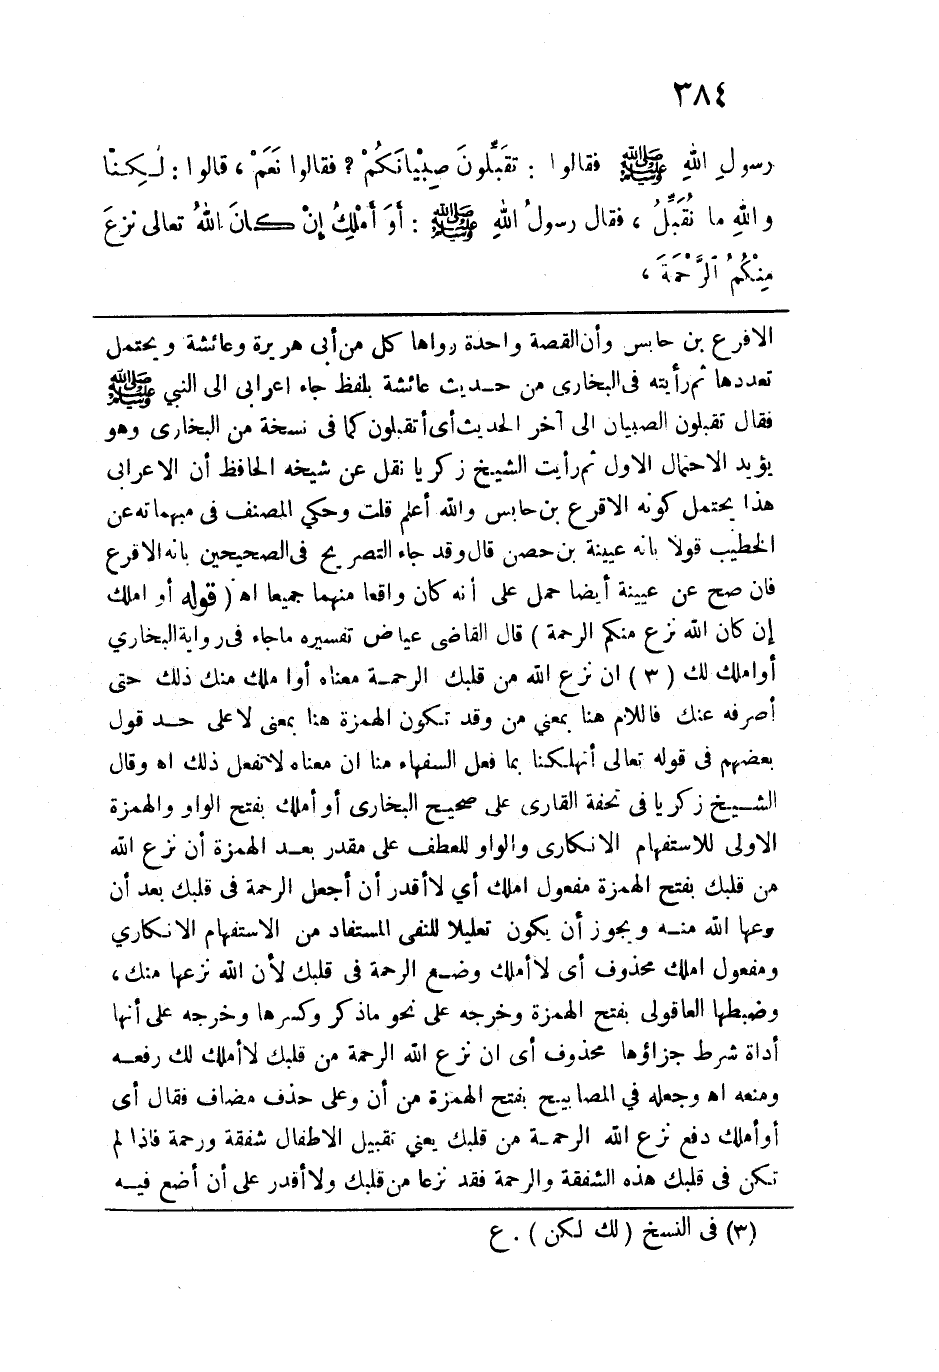 ٣٨٤
رسولِ اللهِ ﷺ فقالوا : تقَبِّلُونَ صِبْيَانَكُمْ ؟ فقالوا نَعَمْ ، قالوا : لٰـكِـنّا
واللهِ ما نُقَبِّلُ ، فقال رسولُ اللهِ ﷺ : أَوَ أَمْلِكُ إِنْ كـانَ اللهُ تعالى نزعَ
مِنْكُمُ الرَّحْمَةَ ،
الاقرع بن حابس وأن القصة واحدة رواها كل من أبى هريرة وعائشة ويحتمل
تعددها ثم رأيته فى البخارى من حـديث عائشة بلفظ جاء اعرابى الى النبي ﷺ
فقال تقبلون الصبيان الى آخر الحديث أى أتقبلون كما فى نسخة من البخارى وهو
يؤيد الاحتمال الاول ثم رأيت الشيخ زكريا نقل عن شيخه الحافظ أن الاعرابى
هذا يحتمل كونه الاقرع بن حابس والله أعلم قلت وحكي المصنف فى مبهماته عن
الخطيب قولا بانه عيينة بن حصن قال وقد جاء التصريح فى الصحيحين بانه الاقرع
فان صح عن عيينة أيضا حمل على أنه كان واقعا منهما جميعا اه ( قوله أو املك
إن كان الله نزع منكم الرحمة ) قال القاضى عياض تفسيره ماجاء فى رواية البخاري
أو املك لك ( ٣ ) ان نزع الله من قلبك الرحمـة معناه أوا ملك منك ذلك حتى
أصرفه عنك فاللام هنا بمعني من وقد تـكون الهمزة هنا بمعنى لا على حـد قول
بعضهم فى قوله تعالى أتهلـكنا بما فعل السفهاء منا ان معناه لاتفعل ذلك اه وقال
الشـيخ زكريا فى تحفة القارى على صحيح البخارى أو أملك بفتح الواو والهمزة
الاولى للاستفهام الانـكارى والواو للعطف على مقدر بعـد الهمزة أن نزع الله
من قلبك بفتح الهمزة مفعول املك أي لا أقدر أن أجعل الرحمة فى قلبك بعد أن
نزعها الله منـه ويجوز أن يكون تعليلا للنفى المستفاد من الاستفهام الانـكاري
ومفعول املك محذوف أى لاأملك وضـع الرحمة فى قلبك لأن الله نزعها منك ،
وضبطها العاقولى بفتح الهمزة وخرجه على نحو ماذكر وكسرها وخرجه على أنها
أداة شرط جزاؤها محذوف أى ان نزع الله الرحمة من قلبك لاأملك لك رفعـه
ومنعه اه وجعله في المصابيح بفتح الهمزة من أن وعلى حذف مضاف فقال أى
أو أملك دفع نزع الله الرحمـة من قلبك يعني تقبيل الاطفال شفقة ورحمة فاذا لم
تـكن فى قلبك هذه الشفقة والرحمة فقد نزعا من قلبك ولا أقدر على أن أضع فيـه
(٣) فى النسخ ( لك لـكن ) . ع